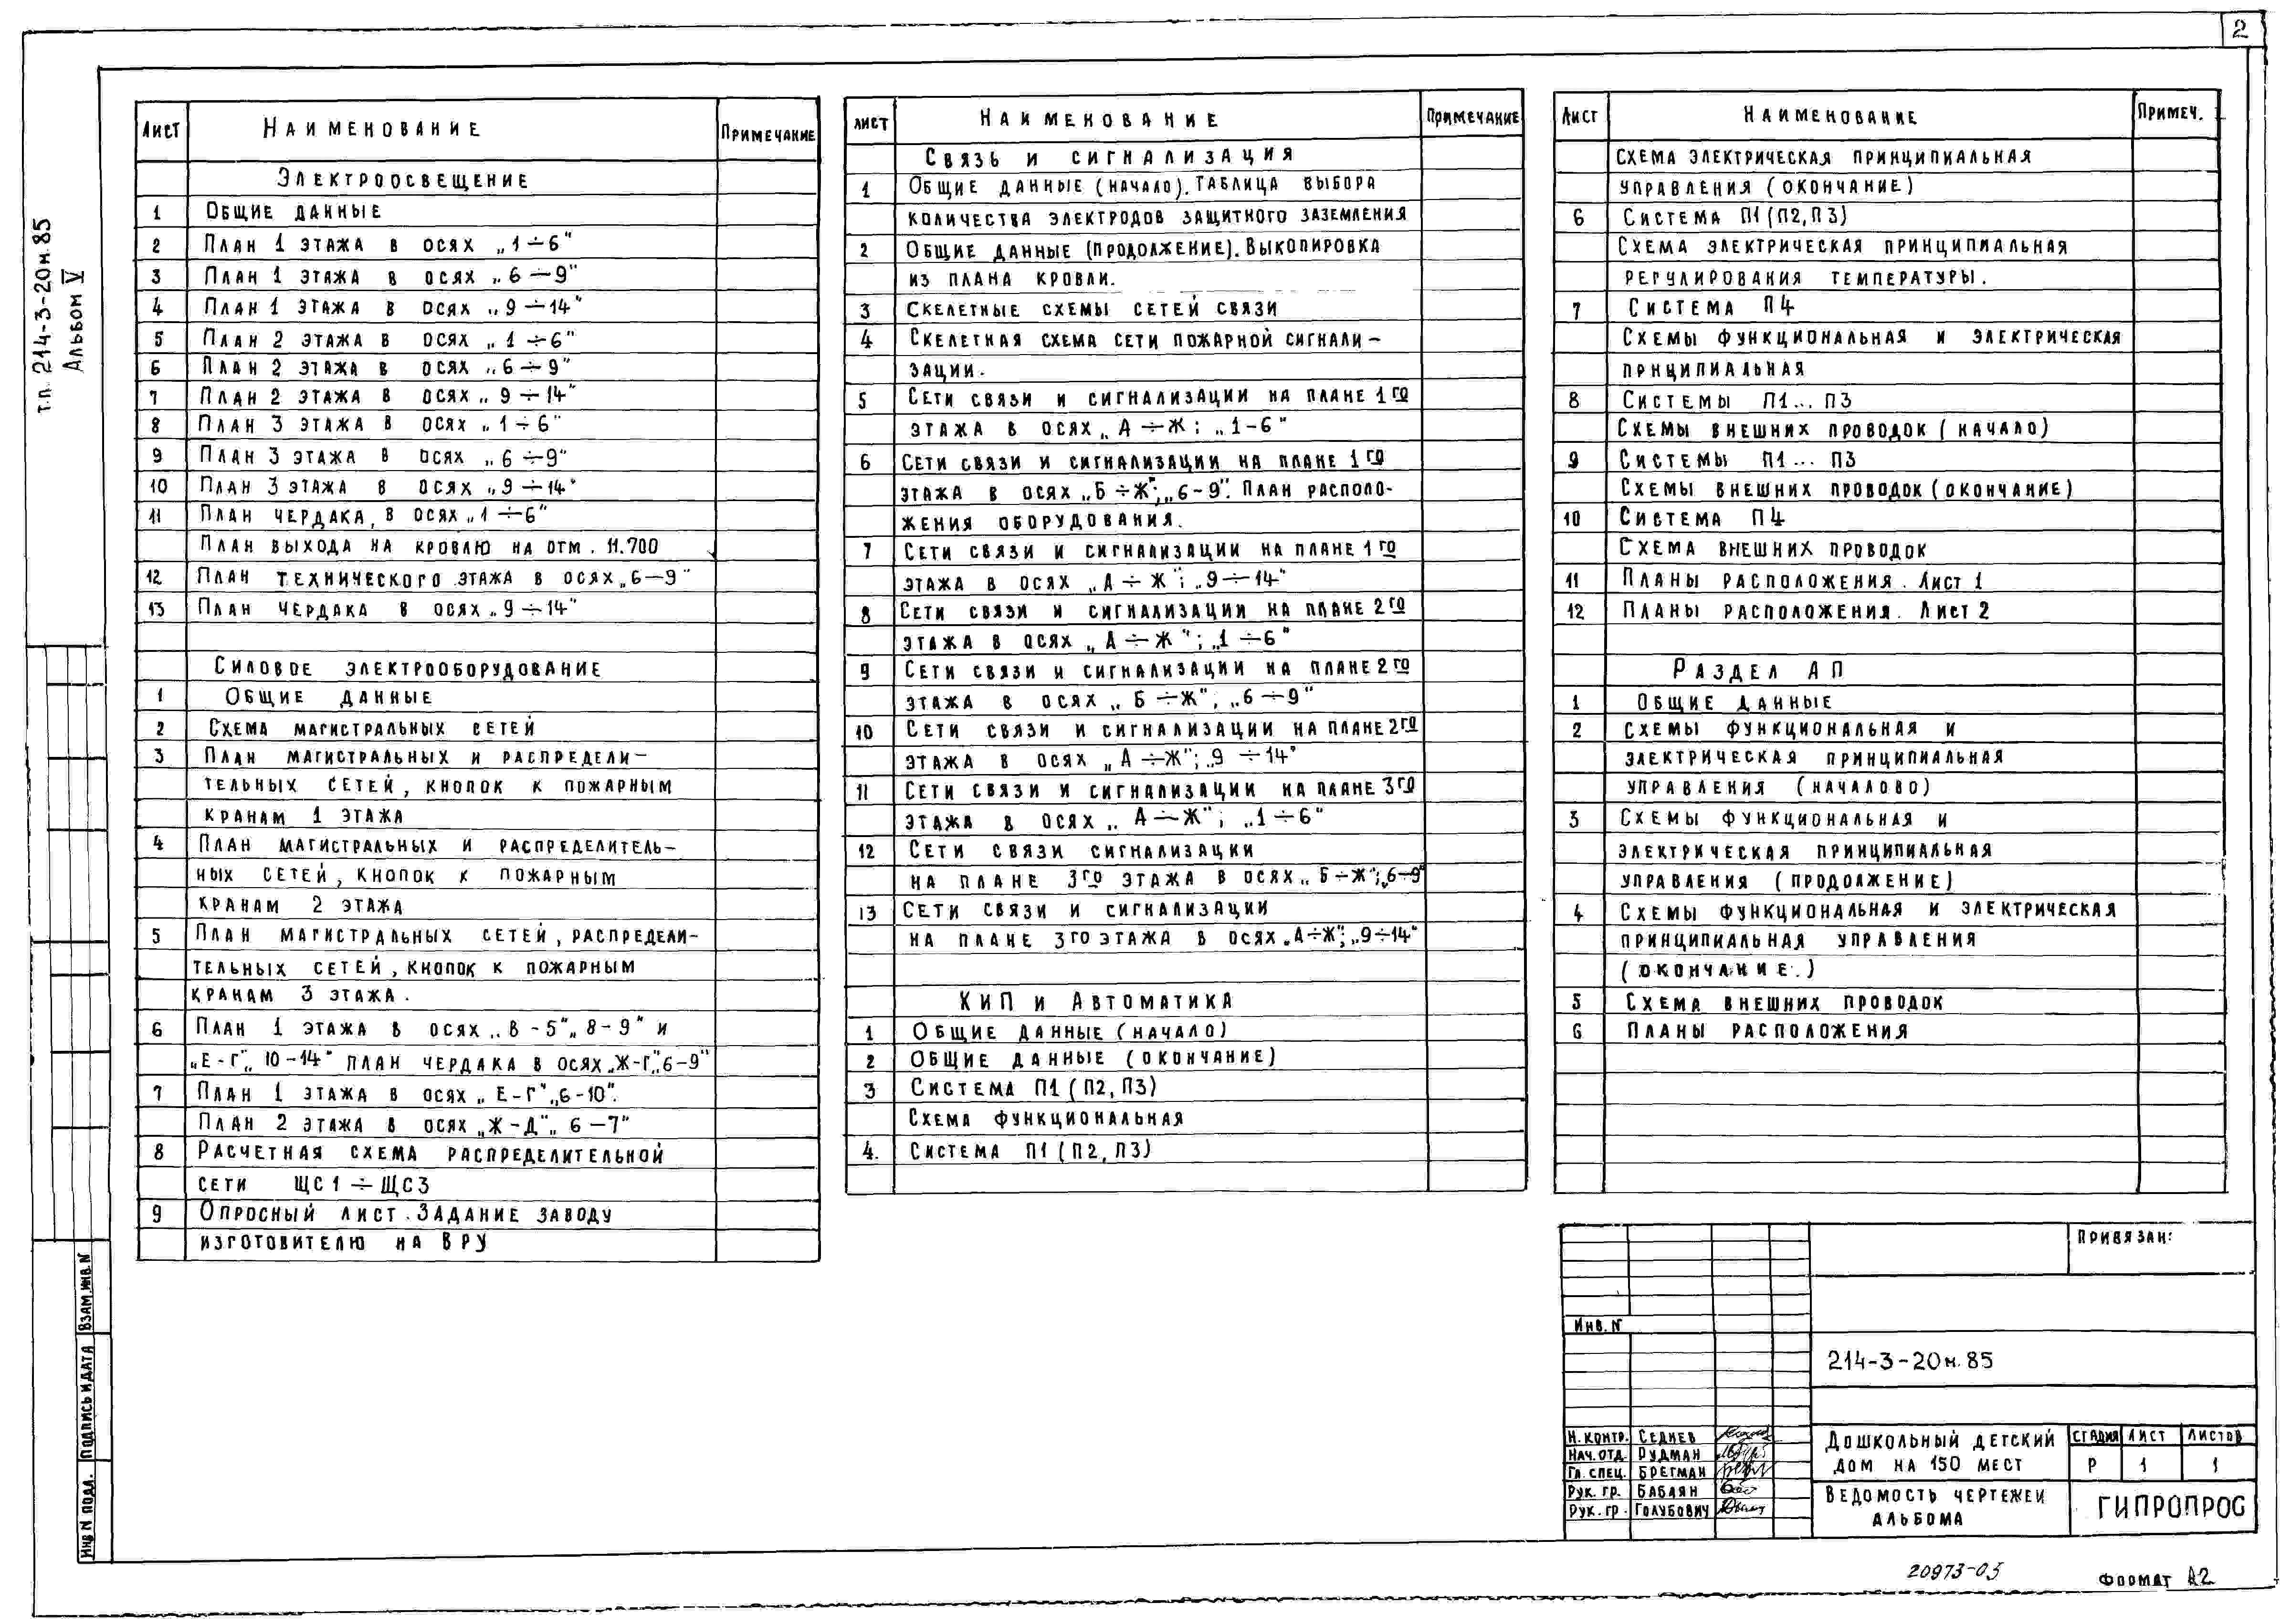 2
т.п. 214-3-20м.85
Альбом V
Лист Наименование Примечание
Электроосвещение
1 Общие данные
2 План 1 этажа в осях „1÷6"
3 План 1 этажа в осях „6÷9"
4 План 1 этажа в осях „9÷14"
5 План 2 этажа в осях „1÷6"
6 План 2 этажа в осях „6÷9"
7 План 2 этажа в осях „9÷14"
8 План 3 этажа в осях „1÷6"
9 План 3 этажа в осях „6÷9"
10 План 3 этажа в осях „9÷14"
11 План чердака, в осях „1÷6"
План выхода на кровлю на отм. 11.700
12 План технического этажа в осях „6—9"
13 План чердака в осях „9÷14"
Силовое электрооборудование
1 Общие данные
2 Схема магистральных сетей
3 План магистральных и распредели-
тельных сетей, кнопок к пожарным
кранам 1 этажа
4 План магистральных и распределитель-
ных сетей, кнопок к пожарным
кранам 2 этажа
5 План магистральных сетей, распредели-
тельных сетей, кнопок к пожарным
кранам 3 этажа.
6 План 1 этажа в осях „В-5"„8-9" и
„Е-Г"„10-14" план чердака в осях „Ж-Г"„6-9"
7 План 1 этажа в осях „Е-Г"„6-10".
План 2 этажа в осях „Ж-Д"„6—7"
8 Расчетная схема распределительной
сети ЩС1÷ЩС3
9 Опросный лист. Задание заводу
изготовителю на ВРУ
лист Наименование Примечание
Связь и сигнализация
1 Общие данные (начало). Таблица выбора
количества электродов защитного заземления
2 Общие данные (продолжение). Выкопировка
из плана кровли.
3 Скелетные схемы сетей связи
4 Скелетная схема сети пожарной сигнали-
зации.
5 Сети связи и сигнализации на плане 1го
этажа в осях „А÷Ж": „1-6"
6 Сети связи и сигнализации на плане 1го
этажа в осях „Б÷Ж"; „6-9". План располо-
жения оборудования.
7 Сети связи и сигнализации на плане 1го
этажа в осях „А÷Ж"; „9÷14"
8 Сети связи и сигнализации на плане 2го
этажа в осях „А÷Ж"; „1÷6"
9 Сети связи и сигнализации на плане 2го
этажа в осях „Б÷Ж"; „6÷9"
10 Сети связи и сигнализации на плане 2го
этажа в осях „А÷Ж"; „9÷14"
11 Сети связи и сигнализации на плане 3го
этажа в осях „А÷Ж"; „1÷6"
12 Сети связи сигнализации
на плане 3го этажа в осях „Б÷Ж"; „6÷9"
13 Сети связи и сигнализации
на плане 3го этажа в осях „А÷Ж"; „9÷14"
КиП и Автоматика
1 Общие данные (начало)
2 Общие данные (окончание)
3 Система П1 (П2, П3)
Схема функциональная
4. Система П1 (П2, П3)
Лист Наименование Примеч.
Схема электрическая принципиальная
управления (окончание)
6 Система П1 (П2, П3)
Схема электрическая принципиальная
регулирования температуры.
7 Система П4
Схемы функциональная и электрическая
прнципиальная
8 Системы П1... П3
Схемы внешних проводок (начало)
9 Системы П1... П3
Схемы внешних проводок (окончание)
10 Система П4
Схема внешних проводок
11 Планы расположения. Лист 1
12 Планы расположения. Лист 2
Раздел АП
1 Общие данные
2 Схемы функциональная и
электрическая принципиальная
управления (началово)
3 Схемы функциональная и
электрическая принципиальная
управления (продолжение)
4 Схемы функциональная и электрическая
принципиальная управления
(окончание.)
5 Схема внешних проводок
6 Планы расположения
Привязан:
Инв. N
214-3-20м.85
Н. контр. Седнев
Нач. отд. Рудман
Гл. спец. Брегман
Рук. гр. Бабаян
Рук. гр. Голубович
Дошкольный детский
дом на 150 мест
Стадия Лист Листов
Р 1 1
Ведомость чертежей
альбома
ГИПРОПРОС
Инв N подл. Подпись и дата Взам. инв. N
20973-05
Формат А2